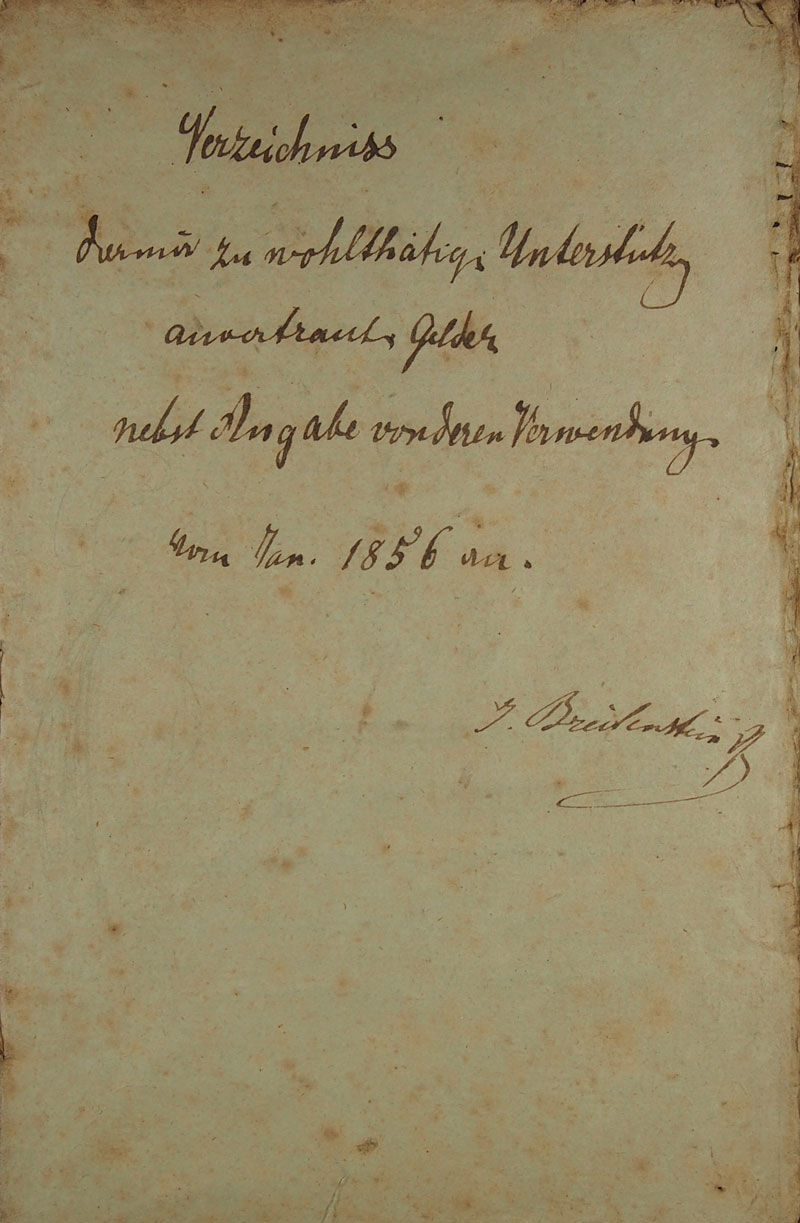 Verzeichniss
der mir zu wohlthätig. Unterstütz
anvertraut. Gelder
nebst Angabe von deren Verwendung.
vom Jan. 1856 an.
J. Breitenstein